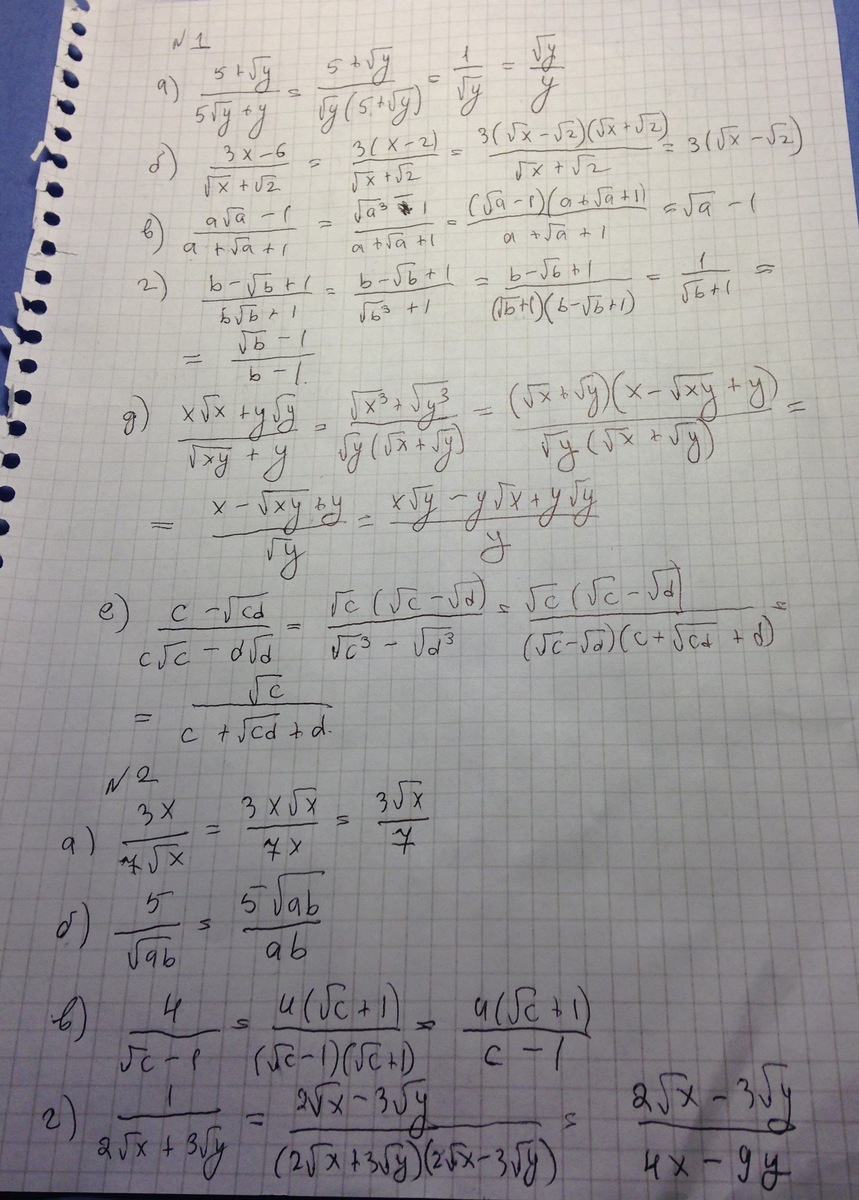 №1
а) (5+√y)/(5√y+y) = (5+√y)/(√y(5+√y)) = 1/√y = √y/y
б) (3x-6)/(√x+√2) = 3(x-2)/(√x+√2) = 3(√x-√2)(√x+√2)/(√x+√2) = 3(√x-√2)
в) (a√a-1)/(a+√a+1) = (√a³-1)/(a+√a+1) = (√a-1)(a+√a+1)/(a+√a+1) = √a-1
г) (b-√b+1)/(b√b+1) = (b-√b+1)/(√b³+1) = (b-√b+1)/((√b+1)(b-√b+1)) = 1/(√b+1) =
= (√b-1)/(b-1).
д) (x√x+y√y)/(√xy+y) = (√x³+√y³)/(√y(√x+√y)) = (√x+√y)(x-√xy+y)/(√y(√x+√y)) =
= (x-√xy+y)/√y = (x√y-y√x+y√y)/y
е) (c-√cd)/(c√c-d√d) = √c(√c-√d)/(√c³-√d³) = √c(√c-√d)/((√c-√d)(c+√cd+d)) =
= √c/(c+√cd+d).
№2
а) 3x/(7√x) = 3x√x/(7x) = 3√x/7
б) 5/√ab = 5√ab/ab
в) 4/(√c-1) = 4(√c+1)/((√c-1)(√c+1)) = 4(√c+1)/(c-1)
г) 1/(2√x+3√y) = (2√x-3√y)/((2√x+3√y)(2√x-3√y)) = (2√x-3√y)/(4x-9y)